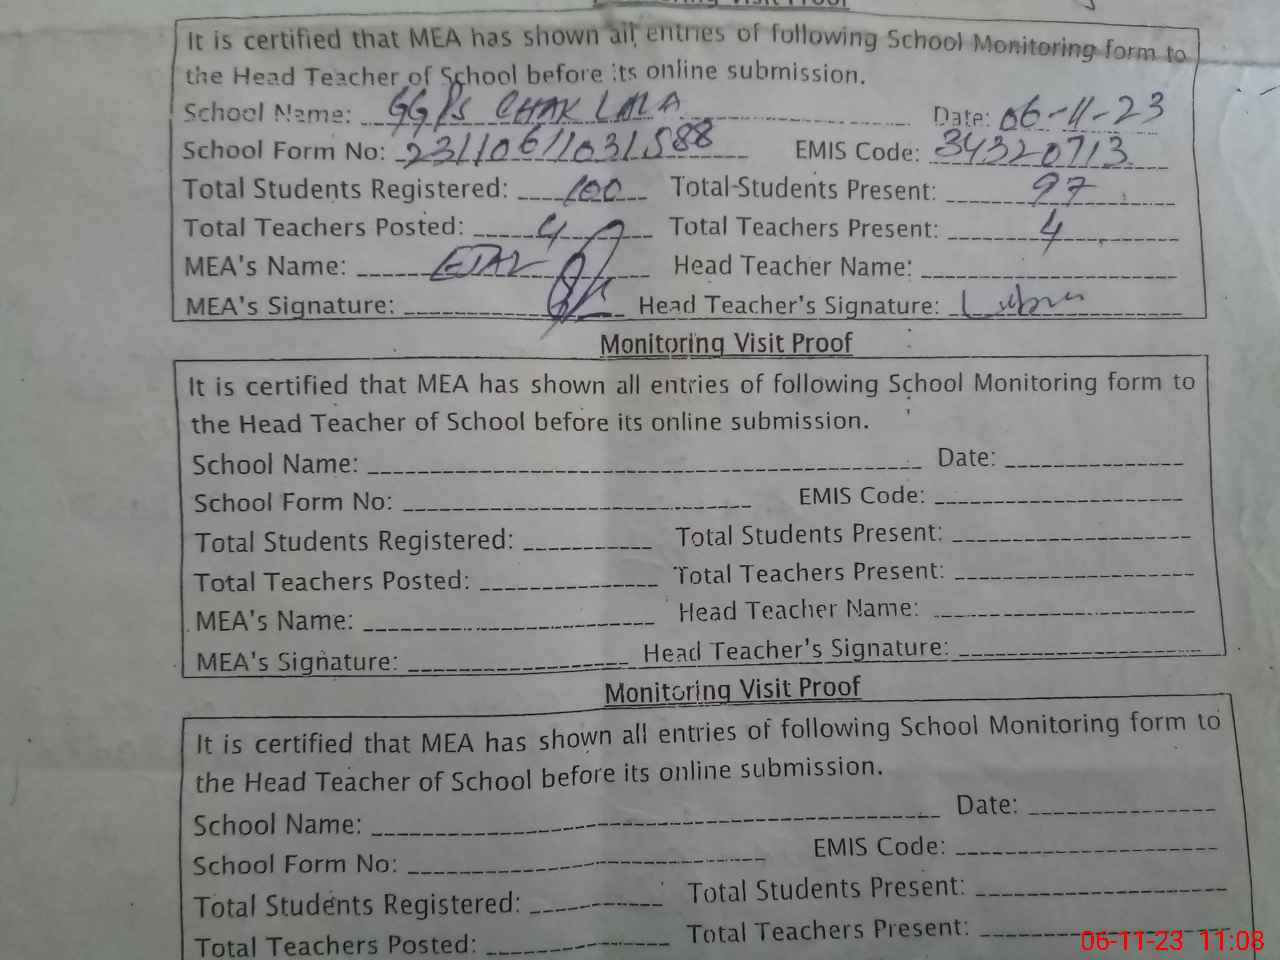 Monitoring Visit Proof
It is certified that MEA has shown all entries of following School Monitoring form to
the Head Teacher of School before its online submission.
School Name: GGPS CHAK LALA Date: 06-11-23
School Form No: 23110611031588 EMIS Code: 34320713
Total Students Registered: 100 Total Students Present: 97
Total Teachers Posted: 4 Total Teachers Present: 4
MEA's Name: EJAZ Head Teacher Name:
MEA's Signature: Head Teacher's Signature: Lubna
Monitoring Visit Proof
It is certified that MEA has shown all entries of following School Monitoring form to
the Head Teacher of School before its online submission.
School Name: Date:
School Form No: EMIS Code:
Total Students Registered: Total Students Present:
Total Teachers Posted: Total Teachers Present:
MEA's Name: Head Teacher Name:
MEA's Signature: Head Teacher's Signature:
Monitoring Visit Proof
It is certified that MEA has shown all entries of following School Monitoring form to
the Head Teacher of School before its online submission.
School Name: Date:
School Form No: EMIS Code:
Total Students Registered: Total Students Present:
Total Teachers Posted: Total Teachers Present:
06-11-23 11:08